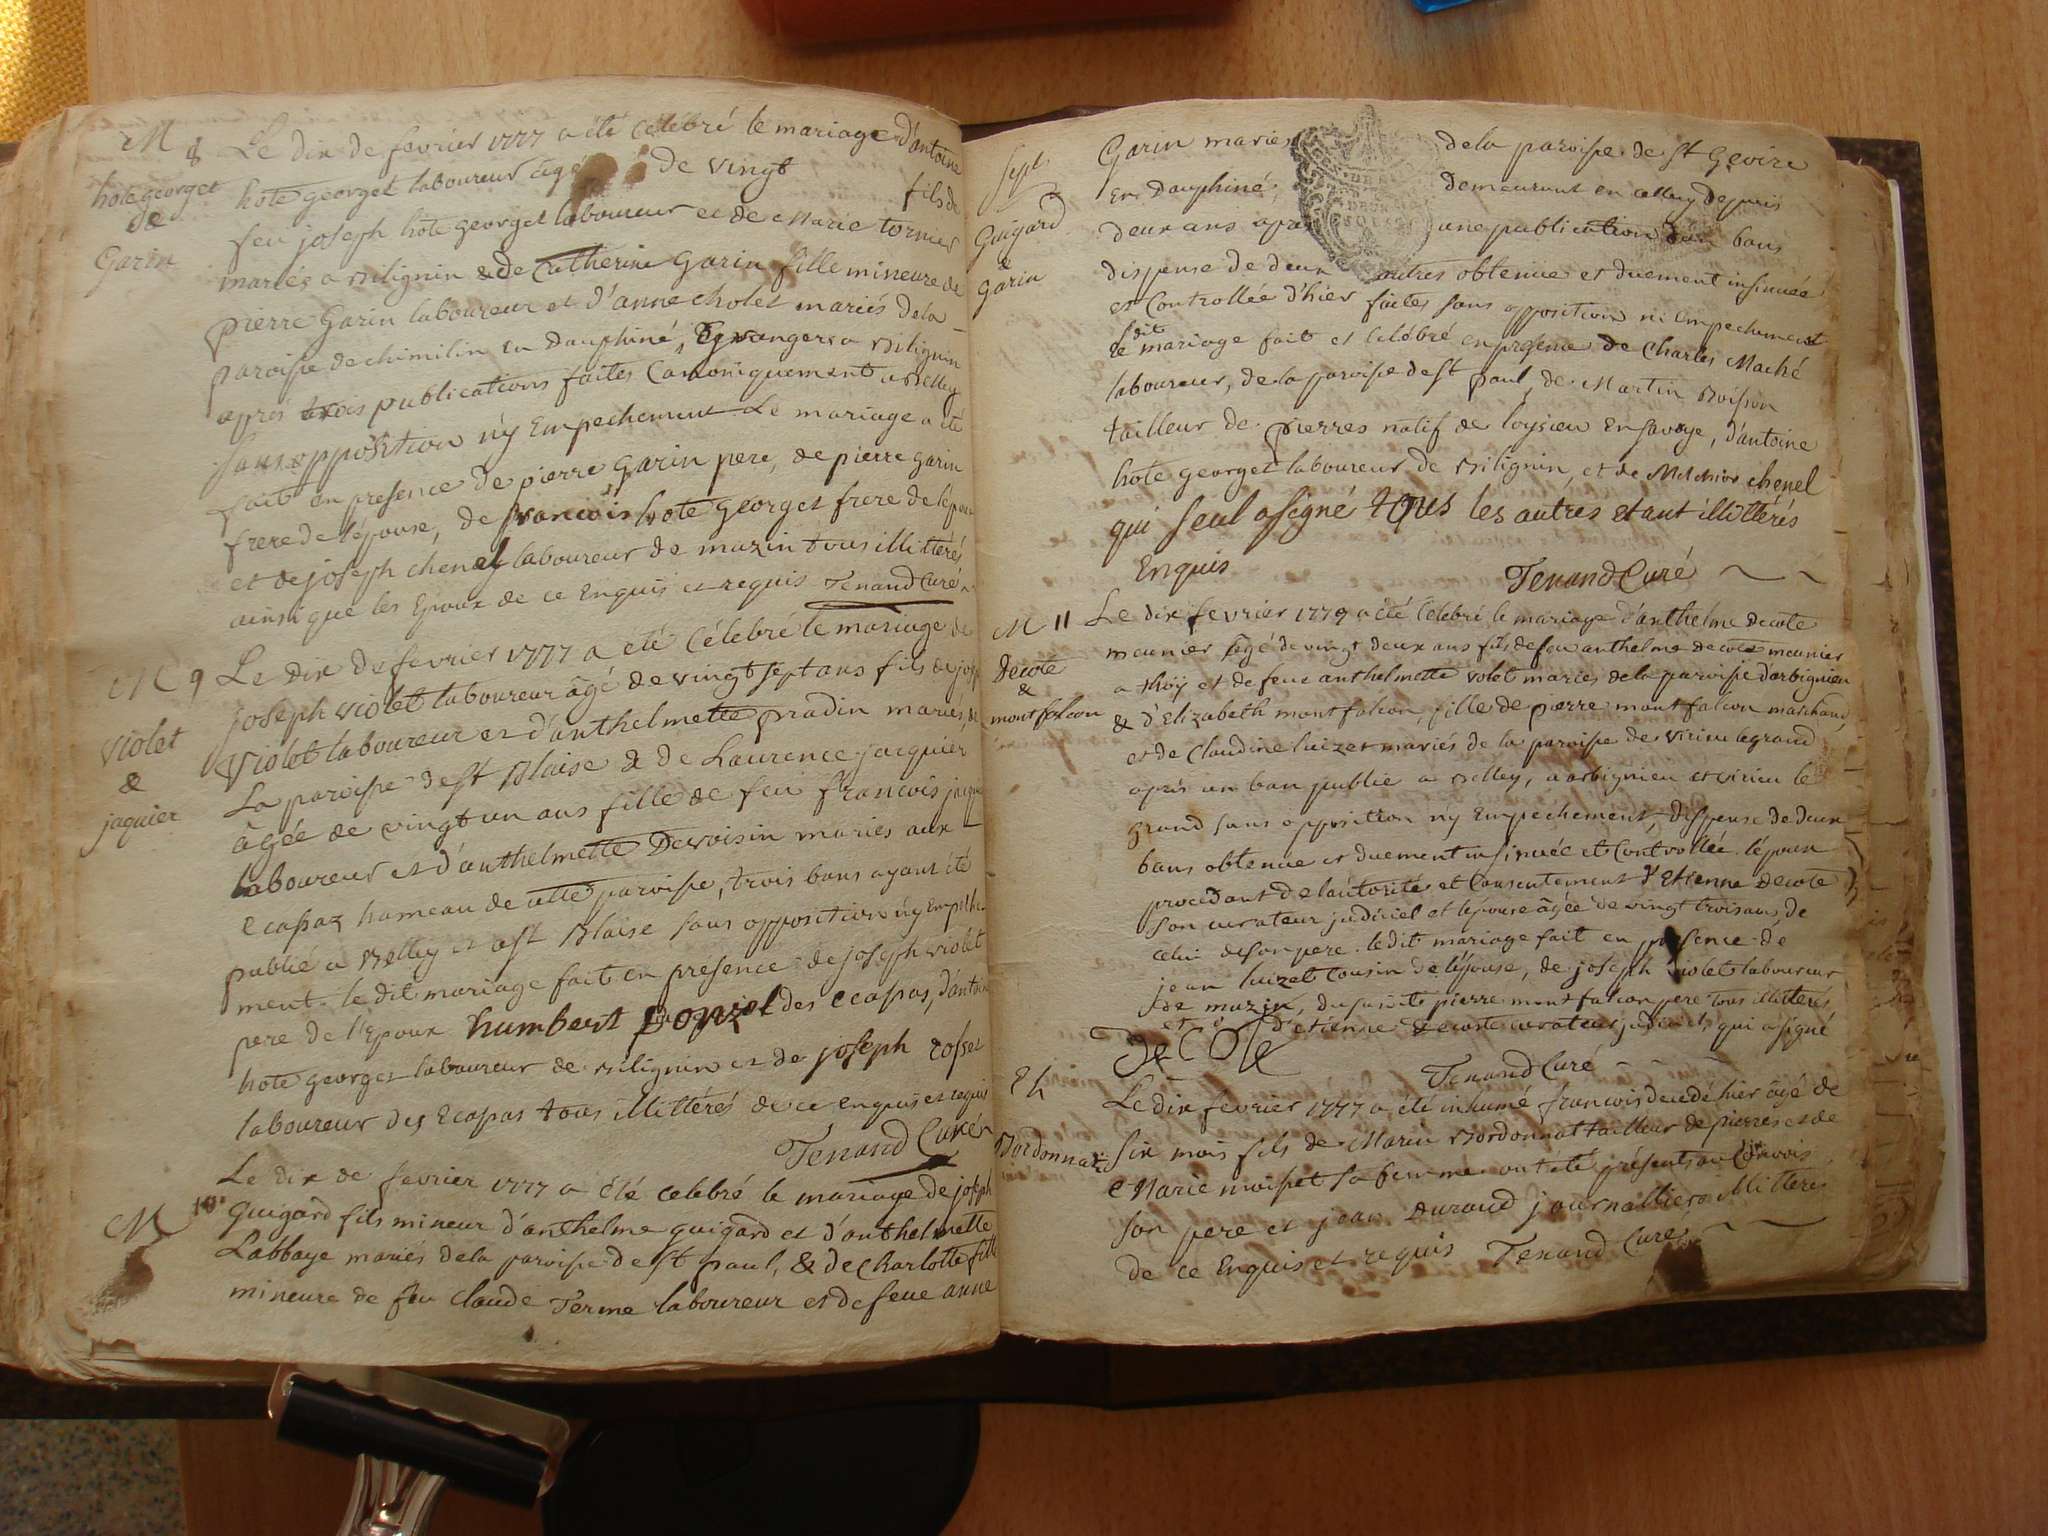 M 8 Le dix de fevrier 1777 a été celebré le mariage d'antoine
hote georget laboureur âgé de vingt fils de
hote georget
&
Garin
feu joseph hote georget laboureur et de Marie tornier
mariés a Bilignin & de Catherine Garin fille mineure de
pierre Garin laboureur et d'anne cholet mariés dela
paroisse de chimilin en Dauphiné, Egrangers a Bilignin
apres trois publications faites Canoniquement a Belley
sans opposition n'y Empechement Le mariage a été
fait en presence de pierre Garin pere, de pierre garin
frere de l'épouse, de francois hote georget frere de l'époux
et de joseph chenel laboureur de muzin tous illittérés
ainsi que les Epoux de ce Enquis et requis Tenand Curé
M 9 Le dix de fevrier 1777 a eté Célebré le mariage de
violet
&
jaquier
joseph violet laboureur âgé de vingt sept ans fils de josp
Violet laboureur et d'anthelmette pradin mariés, de
La paroisse de st Blaise & de Laurence jacquier
âgée de vingt un ans fille de feu francois jacquier
laboureur et d'anthelmette Devoisin mariés aux
Ecassaz hameau de cette paroisse, trois bans ayant été
publié a Belley et a st Blaise sans opposition n'y Empeche-
ment. le dit mariage fait en présence de joseph violet
pere de l'Epoux humbert ponzet des ecassas, d'antoine
hote georget laboureur de Bilignin et de joseph rosset
laboureur des Ecassas tous illittérés de ce enquis et requis
Tenand Curé
M 10 Le dix de fevrier 1777 a été celebré le mariage de joseph
Guigard fils mineur d'anthelme guigard et d'anthelmette
Labbaye mariés dela paroisse de st paul, & de Charlotte fille
mineure de feu Claude Terme laboureur et de feue anne
Garin mariés dela paroisse de st Geoire
sept
Guigard
&
garin
En Dauphiné, demeurant en cette depuis
deux ans apres une publication bans
dispense de deux autres obtenue et duement insinuée
et Controllée d'hier faites sans opposition ni Empechement
le dit mariage fait et célébré en presence de Charles Maché
laboureur, de la paroisse de st paul, de Martin Boisson
tailleur de pierres natif de loysieu en savoye, d'antoine
hote georget laboureur de Bilignin, et de Melchior chenel
qui seul a signé tous les autres etant illittérés
Enquis Tenand Curé
M 11 Le dix fevrier 1777 a été Célebré le mariage d'anthelme Decote
Decote
&
montfalcon
meunier âgé de vingt deux ans fils de feu anthelme decote meunier
a et de feue anthelmette volet mariés dela paroisse d'arbignieu
& d'Elizabeth montfalcon, fille de pierre montfalcon marchand,
et de Claudine luizet mariés de la paroisse de virieu legrand
après un ban publié a Belley, a arbignieu et virieu le
grand sans opposition n'y Empechement, dispense de deux
bans obtenue et duement insinuée et Controllée. l'époux
procedant de l'autorité et Consentement d'Etienne Decote
son curateur judiciel et l'épouse âgée de vingt trois ans, de
celui de son pere. le dit mariage fait en presence de
jean luizet cousin de l'épouse, de joseph violet laboureur
de muzin, du susdit pierre montfalcon pere tous illittérés
et d'etienne decote curateur judiciel, qui a signé
DeCote
Tenand Curé
Eh Le dix fevrier 1777 a été inhumé francois decedé hier âgé de
Bordonnat six mois fils de Marin Bordonnat tailleur de pierres et de
Marie moisset sa femme ont été présents au Convois
son pere et jean Durand journalliers illitterés
de ce Enquis et requis Tenand Curé